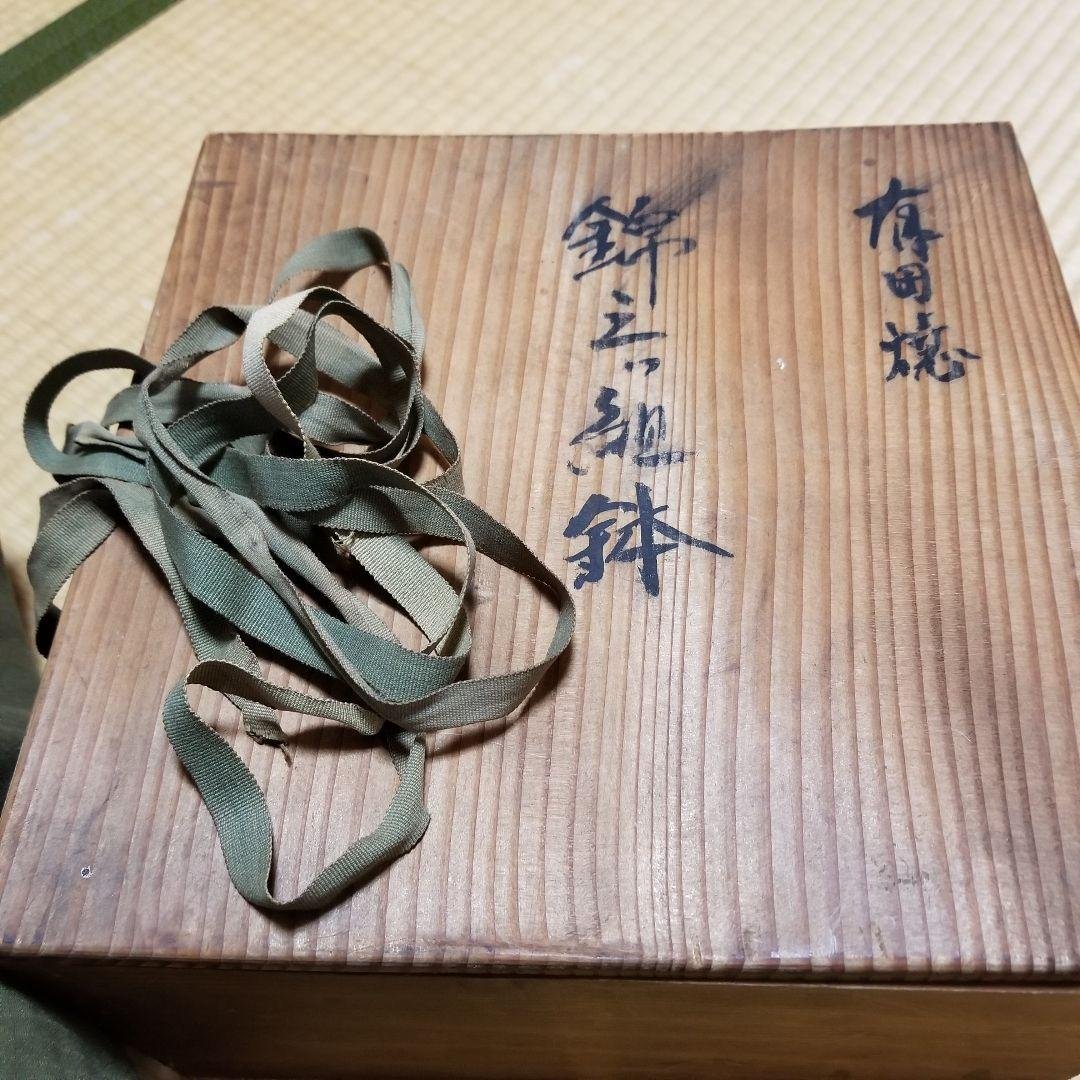 有田焼
錦三ツ組鉢